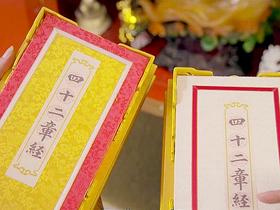 四十二章経
四十二章経